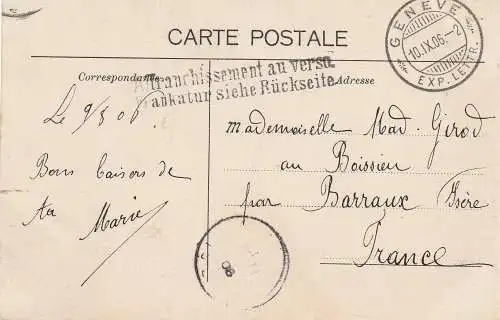 CARTE POSTALE
GENÈVE
10.IX.06.-2
EXP. LETTR.
Affranchissement au verso.
Frankatur siehe Rückseite.
Correspondance
Adresse
Le 9/8 06
Bons baisers de
ta Marie
Mademoiselle Mad. Girod
au Boissieu
par Barraux Isère
France